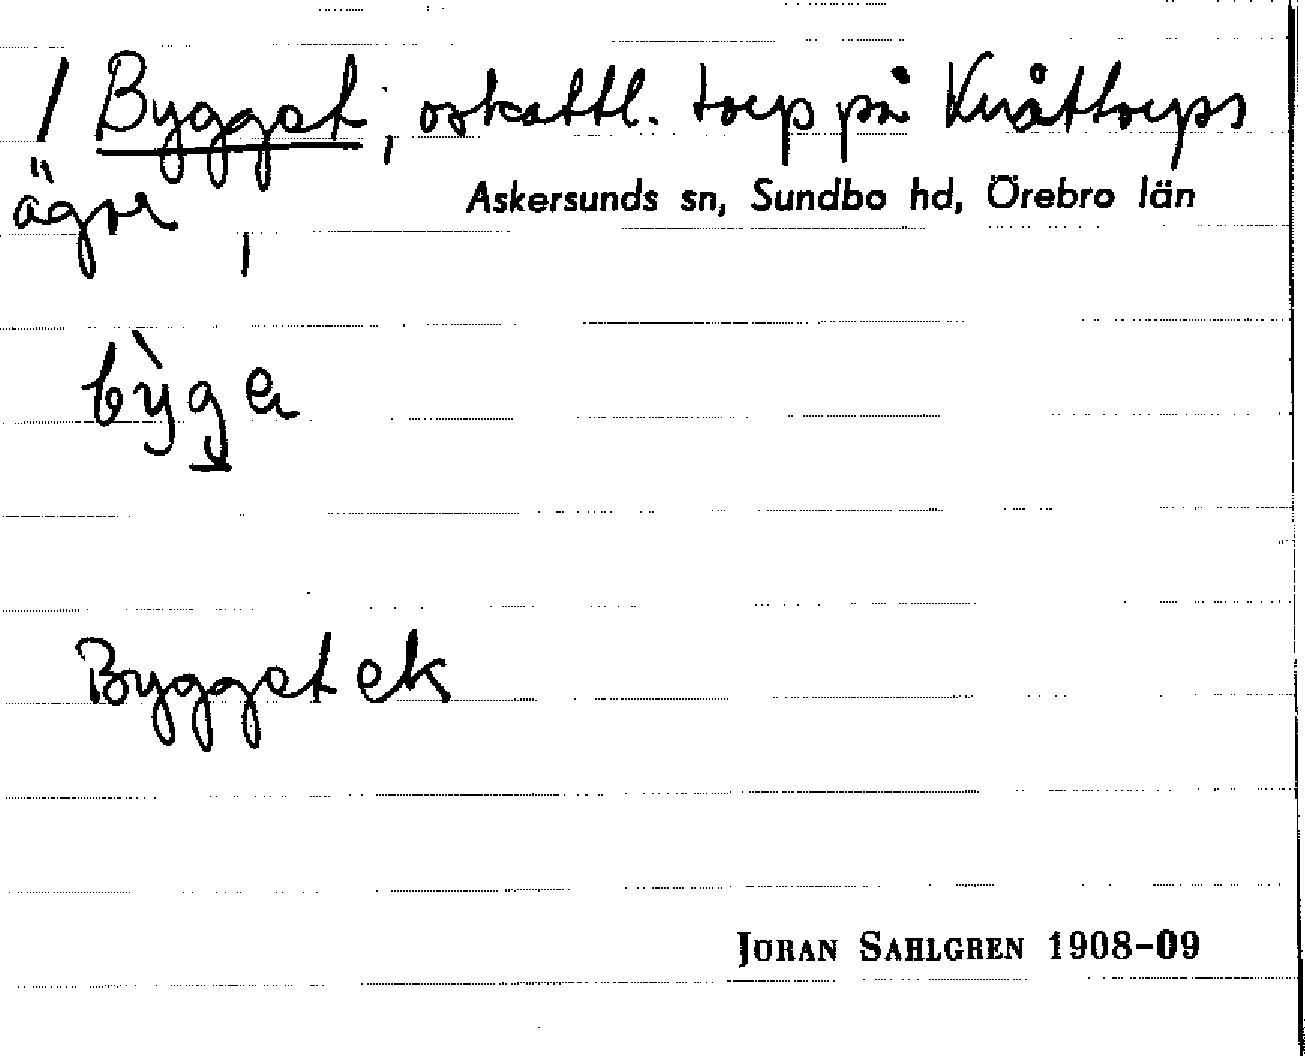 / Bygget, oskattl. torp på Knåttorps
ägor,
Askersunds sn, Sundbo hd, Örebro län
bỳge
Bygget ek
JÖRAN SAHLGREN 1908-09